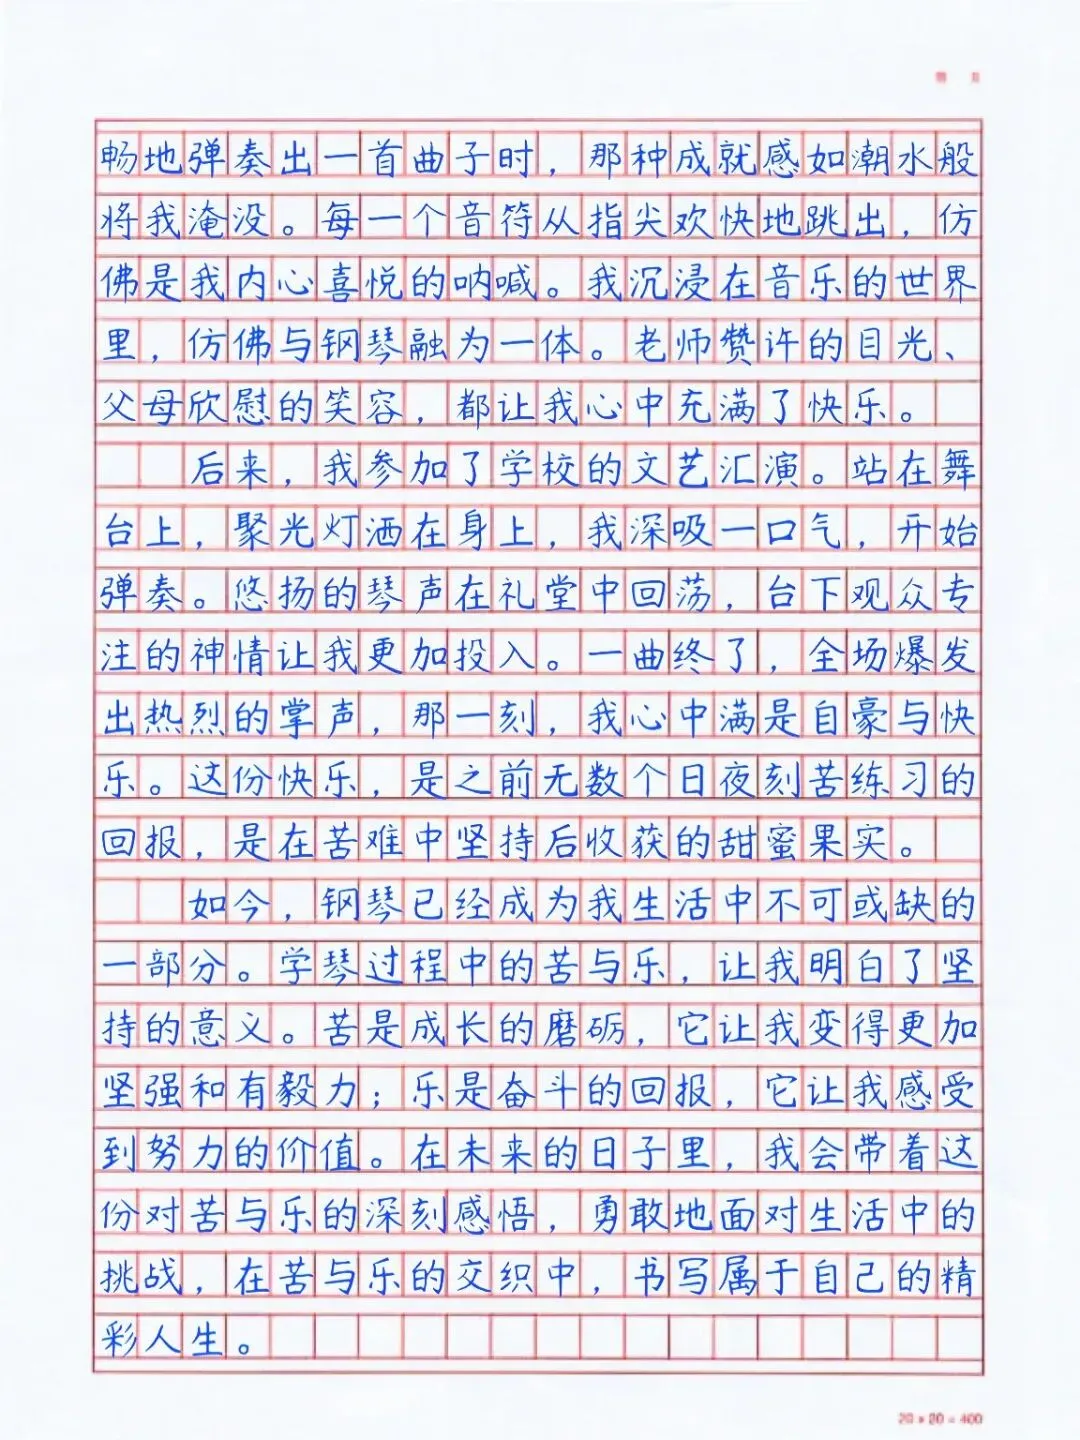 畅地弹奏出一首曲子时，那种成就感如潮水般
将我淹没。每一个音符从指尖欢快地跳出，仿
佛是我内心喜悦的呐喊。我沉浸在音乐的世界
里，仿佛与钢琴融为一体。老师赞许的目光、
父母欣慰的笑容，都让我心中充满了快乐。
后来，我参加了学校的文艺汇演。站在舞
台上，聚光灯洒在身上，我深吸一口气，开始
弹奏。悠扬的琴声在礼堂中回荡，台下观众专
注的神情让我更加投入。一曲终了，全场爆发
出热烈的掌声，那一刻，我心中满是自豪与快
乐。这份快乐，是之前无数个日夜刻苦练习的
回报，是在苦难中坚持后收获的甜蜜果实。
如今，钢琴已经成为我生活中不可或缺的
一部分。学琴过程中的苦与乐，让我明白了坚
持的意义。苦是成长的磨砺，它让我变得更加
坚强和有毅力；乐是奋斗的回报，它让我感受
到努力的价值。在未来的日子里，我会带着这
份对苦与乐的深刻感悟，勇敢地面对生活中的
挑战，在苦与乐的交织中，书写属于自己的精
彩人生。
20×20=400